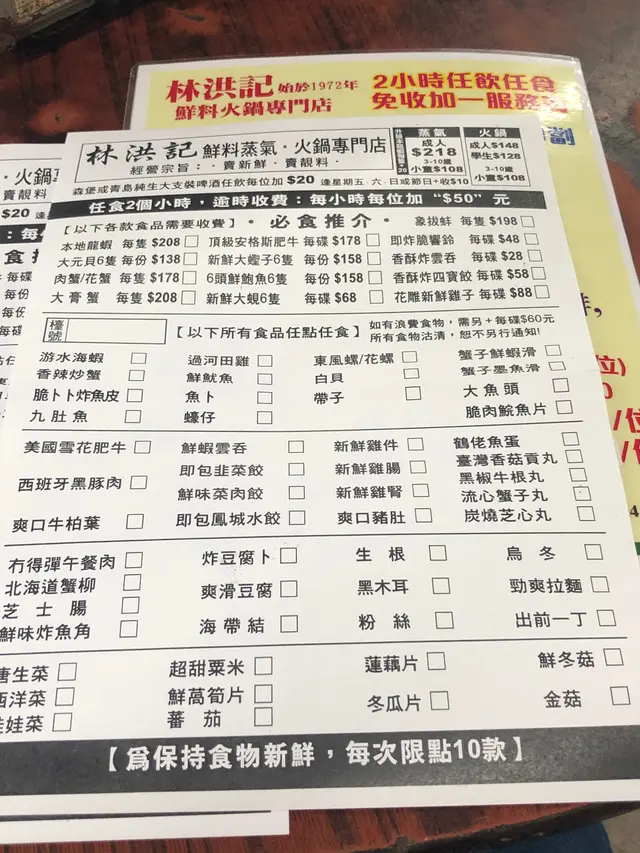 林洪記 始於1972年
鮮料火鍋專門店
2小時任飲任食
免收加一服務
林洪記 鮮料蒸氣・火鍋專門店
經營宗旨：·賣新鮮·賣靚料·
蒸氣
成人
$218
3-10歲
小童$108
火鍋
成人$148
學生$128
3-10歲
小童$108
森堡或青島純生大支裝啤酒任飲每位加 $20 逢星期五·六·日或節日+收$10
任食2個小時，逾時收費：每小時每位加 "$50" 元
【以下各款食品需要收費】·必食推介· 象拔蚌 每隻 $198
本地龍蝦 每隻 $208 頂級安格斯肥牛 每碟 $178 即炸脆響鈴 每碟 $48
大元貝6隻 每份 $138 新鮮大蟶子6隻 每份 $158 香酥炸雲吞 每碟 $28
肉蟹/花蟹 每隻 $178 6頭鮮鮑魚6隻 每份 $158 香酥炸四寶餃 每碟 $58
大膏蟹 每隻 $208 新鮮大蜆6隻 每碟 $68 花雕新鮮雞子 每碟 $88
檯號 【以下所有食品任點任食】 如有浪費食物，需另+每碟$60元
所有食物沽清，恕不另行通知!
游水海蝦 過河田雞 東風螺/花螺 蟹子鮮蝦滑
香辣炒蟹 鮮魷魚 白貝 蟹子墨魚滑
脆卜卜炸魚皮 魚卜 帶子 大魚頭
九肚魚 蠔仔 脆肉鯇魚片
美國雪花肥牛 鮮蝦雲吞 新鮮雞件 鶴佬魚蛋
即包韭菜餃 新鮮雞腸 臺灣香菇貢丸
西班牙黑豚肉 鮮味菜肉餃 新鮮雞腎 黑椒牛根丸
流心蟹子丸
爽口牛柏葉 即包鳳城水餃 爽口豬肚 炭燒芝心丸
冇得彈午餐肉 炸豆腐卜 生根 烏冬
北海道蟹柳 爽滑豆腐 黑木耳 勁爽拉麵
芝士腸 海帶結 粉絲 出前一丁
鮮味炸魚角
唐生菜 超甜粟米 蓮藕片 鮮冬菇
西洋菜 鮮萵筍片 冬瓜片 金菇
娃娃菜 蕃茄
【爲保持食物新鮮，每次限點10款】